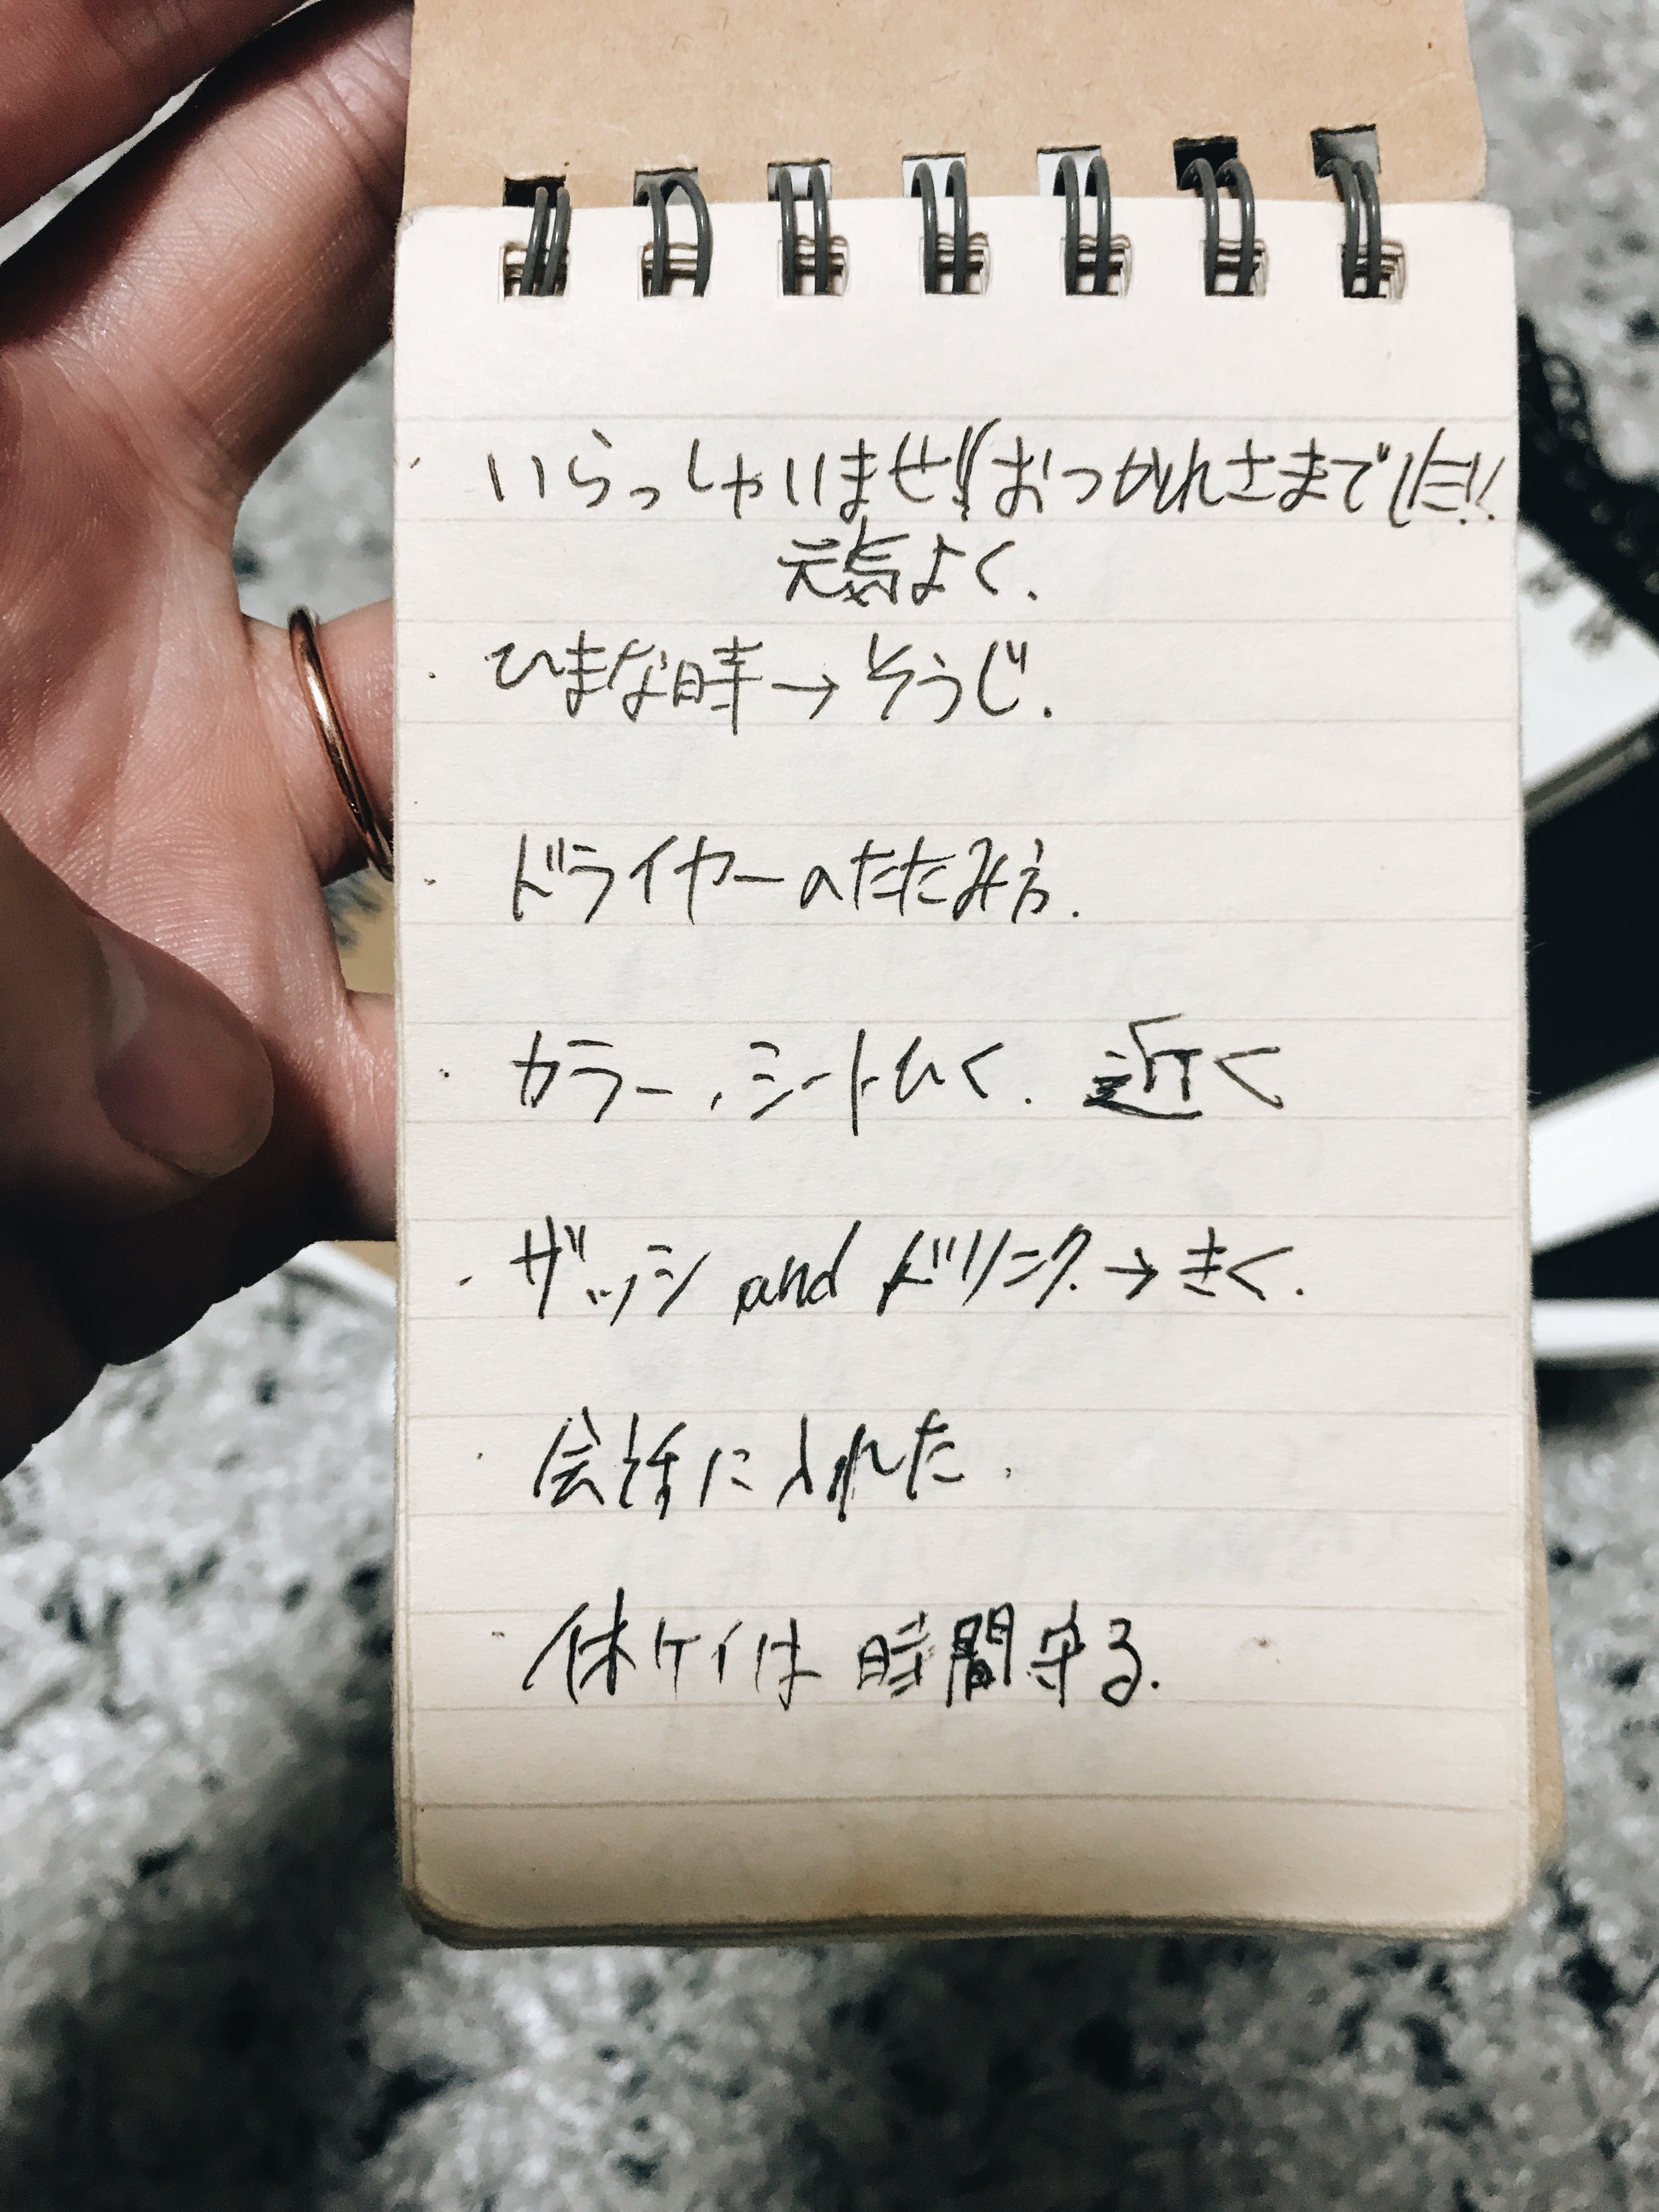 ・いらっしゃいませ!!おつかれさまでした!!
元気よく.
・ひまな時→そうじ.
・ドライヤーのたたみ方.
・カラー、シートひく. 近く
・ザッシ and ドリンク→きく.
・会話に入れた.
・休ケイは 時間守る.